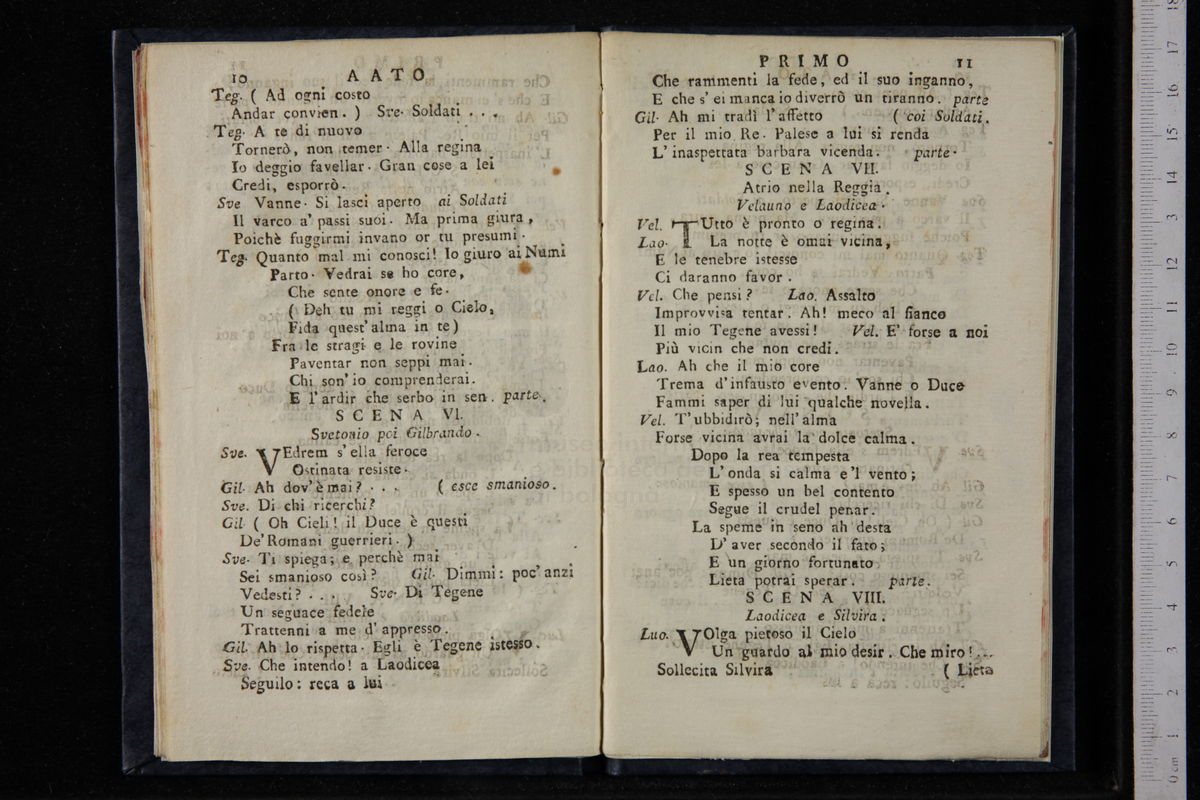 10 AATO
Teg. ( Ad ogni costo
Andar convien. ) Sve. Soldati . . .
Teg. A te di nuovo
Tornerò, non temer. Alla regina
Io deggio favellar. Gran cose a lei
Credi, esporrò.
Sve Vanne. Si lasci aperto ai Soldati
Il varco a' passi suoi. Ma prima giura,
Poichè fuggirmi invano or tu presumi.
Teg. Quanto mal mi conosci! Io giuro ai Numi
Parto. Vedrai se ho core,
Che sente onore e fe.
( Deh tu mi reggi o Cielo,
Fida quest'alma in te)
Fra le stragi e le rovine
Paventar non seppi mai.
Chi son' io comprenderai.
E l'ardir che serbo in sen. parte.
SCENA VI.
Svetonio poi Gilbrando.
Sve. VEdrem s'ella feroce
Ostinata resiste.
Gil. Ah dov'è mai? . . . ( esce smanioso.
Sve. Di chi ricerchi?
Gil ( Oh Cieli! il Duce è questi
De'Romani guerrieri. )
Sve. Ti spiega; e perchè mai
Sei smanioso così? Gil. Dimmi: poc'anzi
Vedesti? . . . Sve. Di Tegene
Un seguace fedele
Trattenni a me d'appresso.
Gil. Ah lo rispetta. Egli è Tegene istesso.
Sve. Che intendo! a Laodicea
Seguilo: reca a lui
PRIMO 11
Che rammenti la fede, ed il suo inganno,
E che s' ei manca io diverrò un tiranno. parte
Gil. Ah mi tradì l'affetto ( coi Soldati.
Per il mio Re. Palese a lui si renda
L' inaspettata barbara vicenda. parte.
SCENA VII.
Atrio nella Reggia.
Velauno e Laodicea.
Vel. TUtto è pronto o regina.
Lao. La notte è omai vicina,
E le tenebre istesse
Ci daranno favor.
Vel. Che pensi? Lao. Assalto
Improvvisa tentar. Ah! meco al fianco
Il mio Tegene avessi! Vel. E' forse a noi
Più vicin che non credi.
Lao. Ah che il mio core
Trema d'infausto evento. Vanne o Duce
Fammi saper di lui qualche novella.
Vel. T'ubbidirò; nell'alma
Forse vicina avrai la dolce calma.
Dopo la rea tempesta
L'onda si calma e 'l vento;
E spesso un bel contento
Segue il crudel penar.
La speme in seno ah desta
D' aver secondo il fato;
E un giorno fortunato
Lieta potrai sperar. parte.
SCENA VIII.
Laodicea e Silvira.
Luo. VOlga pietoso il Cielo
Un guardo al mio desir. Che miro! ...
Sollecita Silvira ( Lieta